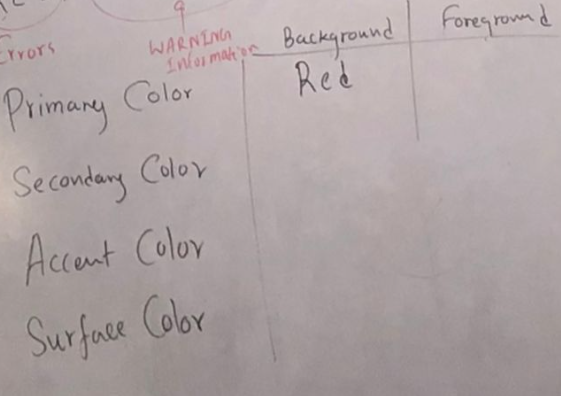 Errors
WARNING
Information
Background Foreground
Primary Color Red
Secondary Color
Accent Color
Surface Color